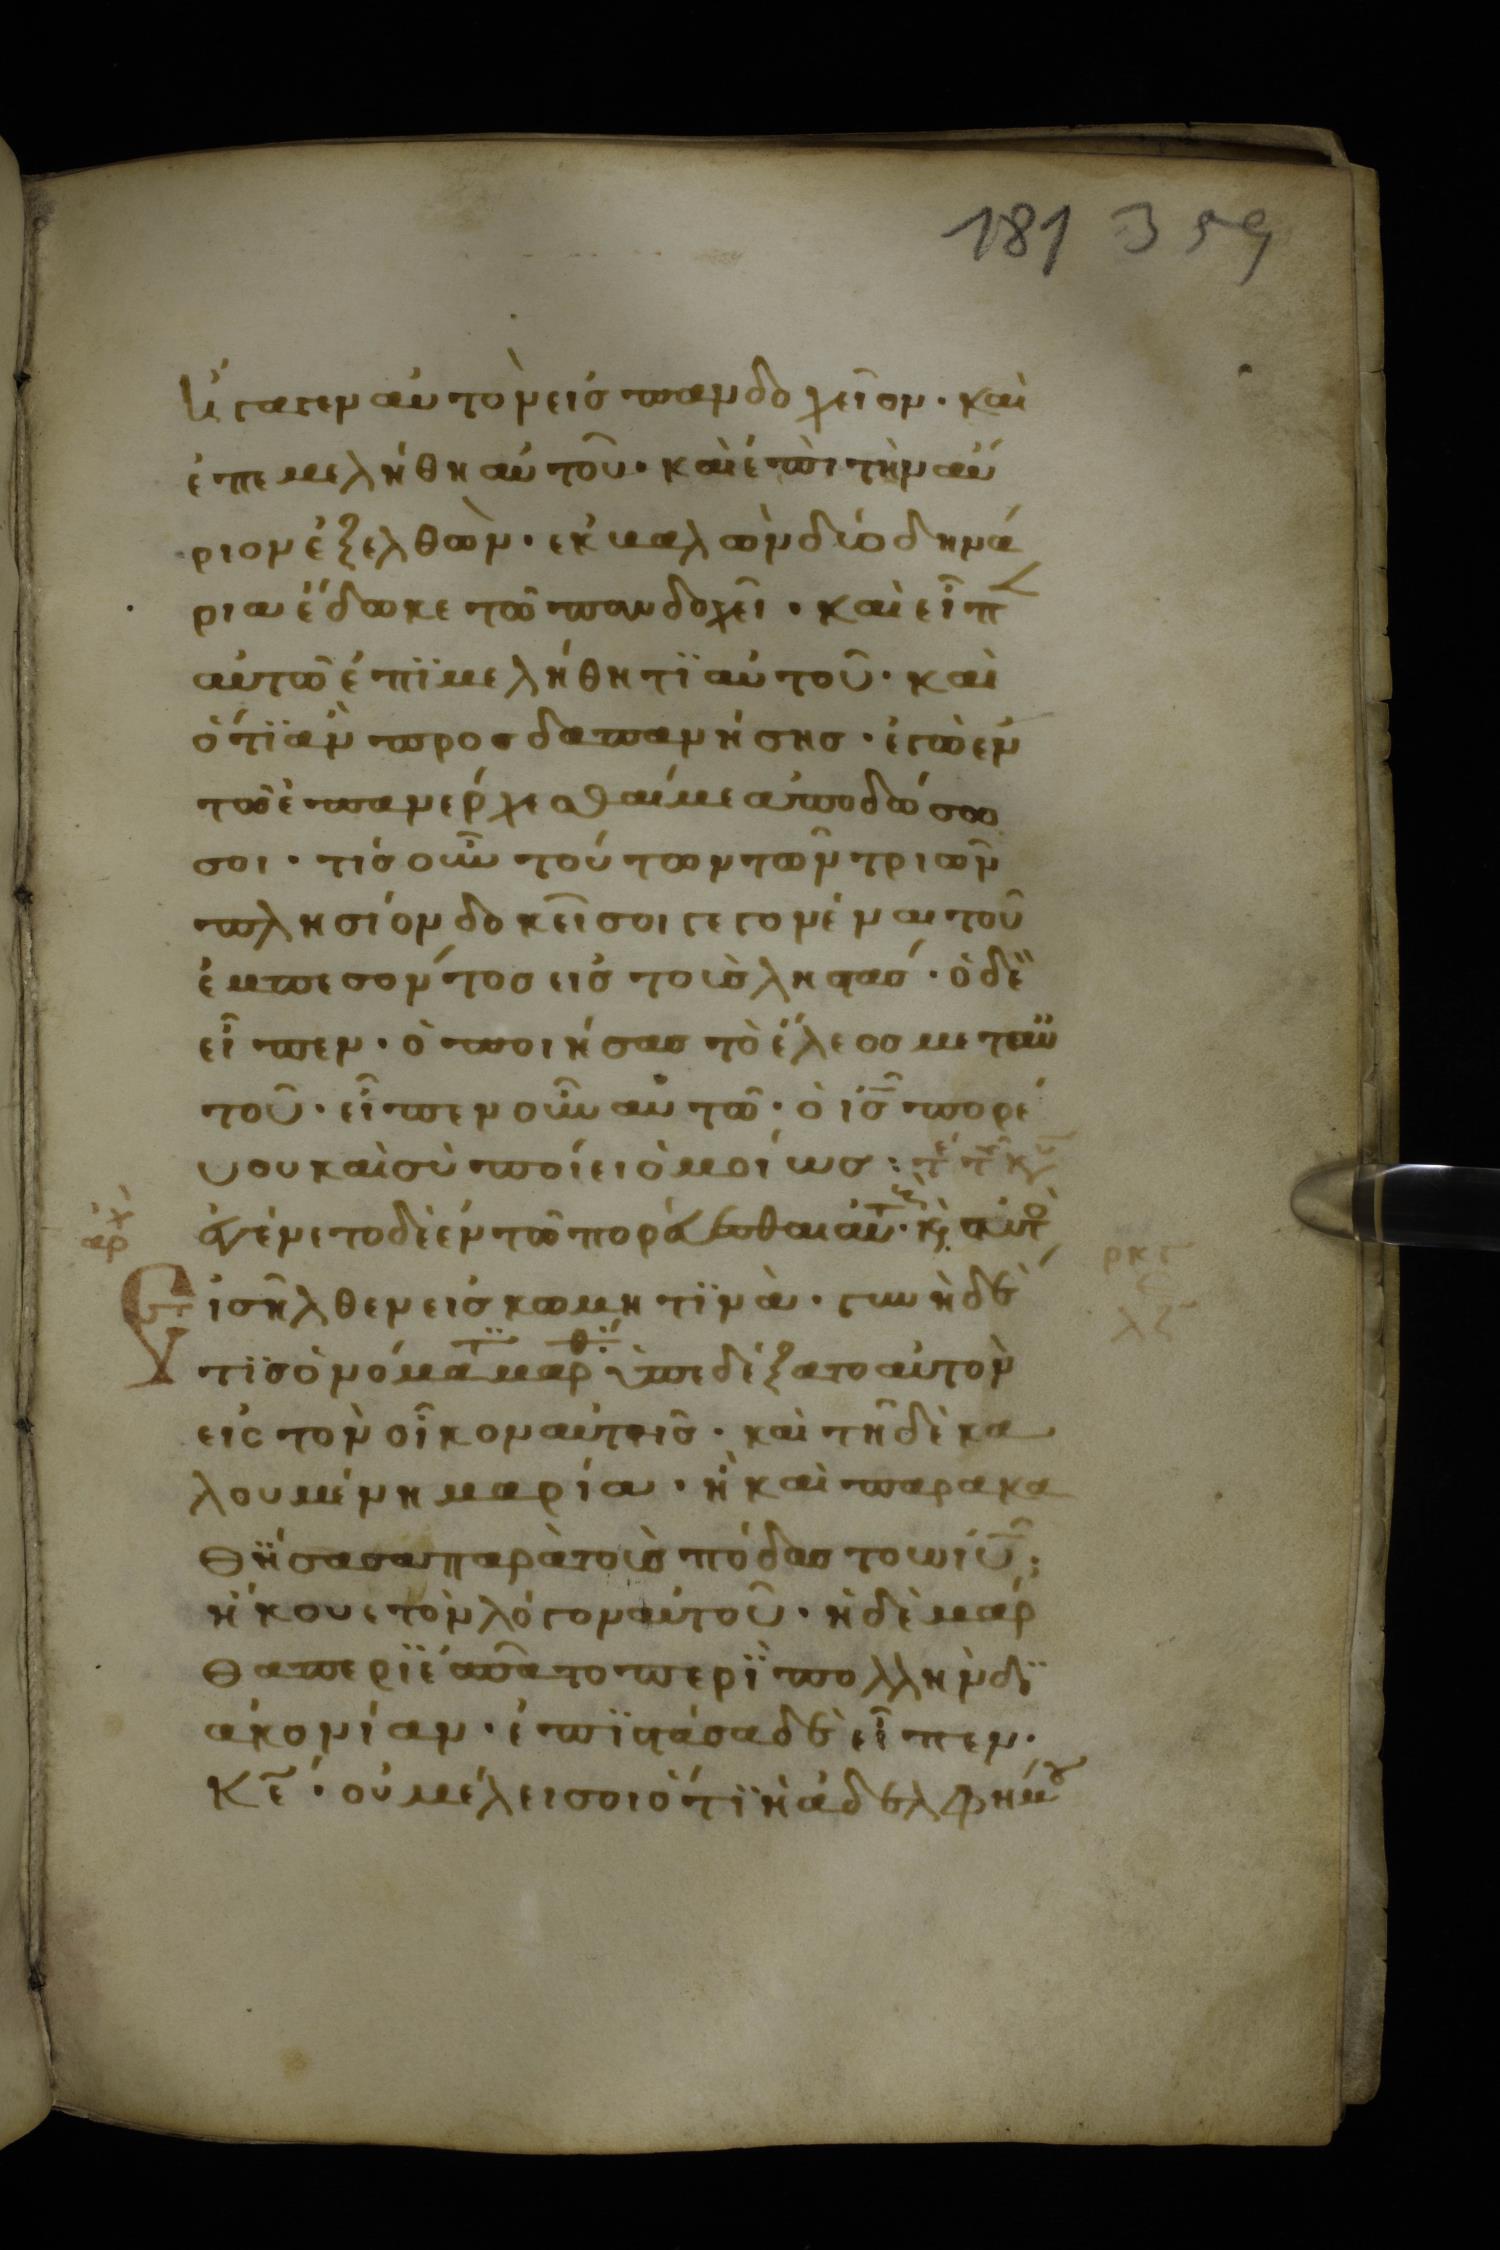 181 359
ἤγαγεν αὐτὸν εἰσ πανδοχεῖον · καὶ
ἐπεμελήθη αὐτοῦ · καὶ ἐπὶ τὴν αὔ
ριον ἐξελθὼν · ἐκβαλὼν δύο δηνά
ρια ἔδωκε τῶ πανδοχεῖ · καὶ εἶπ
αὐτῶ ἐπϊμελήθητϊ αὐτοῦ · καὶ
ὅτϊ ἂν προσδαπανήσησ · ἐγὼ ἐν
τῶ ἐπανέρχεσθαί με ἀποδώσω
σοι · τίσ οὖν τούτων τῶν τριῶν
πλησίον δοκεῖ σοι γεγονέναι τοῦ
ἐμπεσόντοσ εἰσ τοὺσ ληστάσ · ὁ δὲ
εἶπεν · ὁ ποιήσασ τὸ ἔλεοσ μετ αὐ
τοῦ · εἶπεν οὖν αὐτῶ · ὁ ισ πορεύ
ου καὶ σὺ ποίει ὁμοίωσ :
ἐγένετο δὲ ἐν τῶ πορεύεσθαι αὐτ · κ αὐτὸ
Εἰσῆλθεν εἰσ κώμη τϊνὰ · γυνὴ δέ
τϊσ ὀνόματϊ μάρθα ὑπεδέξατο αὐτὸν
εἰσ τὸν οἶκον αὐτῆσ · καὶ τῆδε κα
λουμένη μαρία · ἣ καὶ παρακα
θήσασα παρὰ τοὺσ πόδασ του ιυ ·
ἤκουε τὸν λόγον αὐτοῦ · ἡ δὲ μάρ
θα περϊεσπᾶτο περϊ πολλὴν δϊ
ακονίαν · ἐπϊστάσα δὲ εἶπεν ·
κε · οὐ μέλει σοι ὅτϊ ἡ ἀδελφή μου
ἀρχ
ρκς
λζ